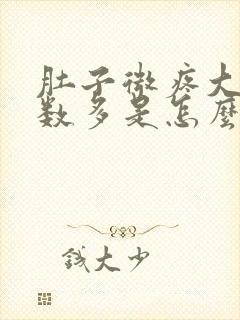 肚子微疼大
数多是怎麼
钱大少